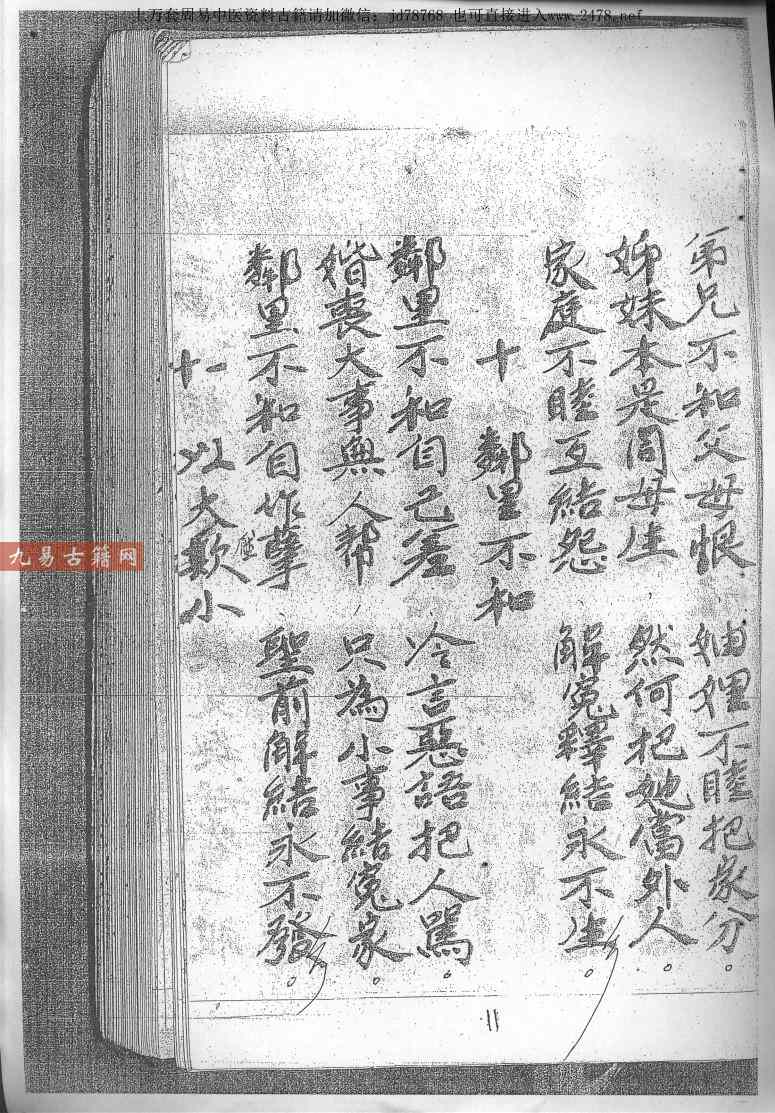 上万套周易中医资料古籍请加微信：jd78768 也可直接进入www.2478.net
弟兄不和父母恨 妯娌不睦把家分。
姊妹本是同母生 然何把她當外人。
家庭不睦互結怨 解冤釋結永不生。
十 鄰里不和
鄰里不和自己差 冷言惡語把人罵。
婚喪大事無人幇 只為小事結冤家。
鄰里不和自作孽 聖前解結永不發。
十一 以大欺小
九易古籍网
11